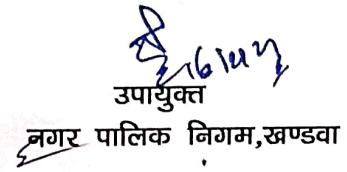 उपायुक्त
नगर पालिक निगम,खण्डवा